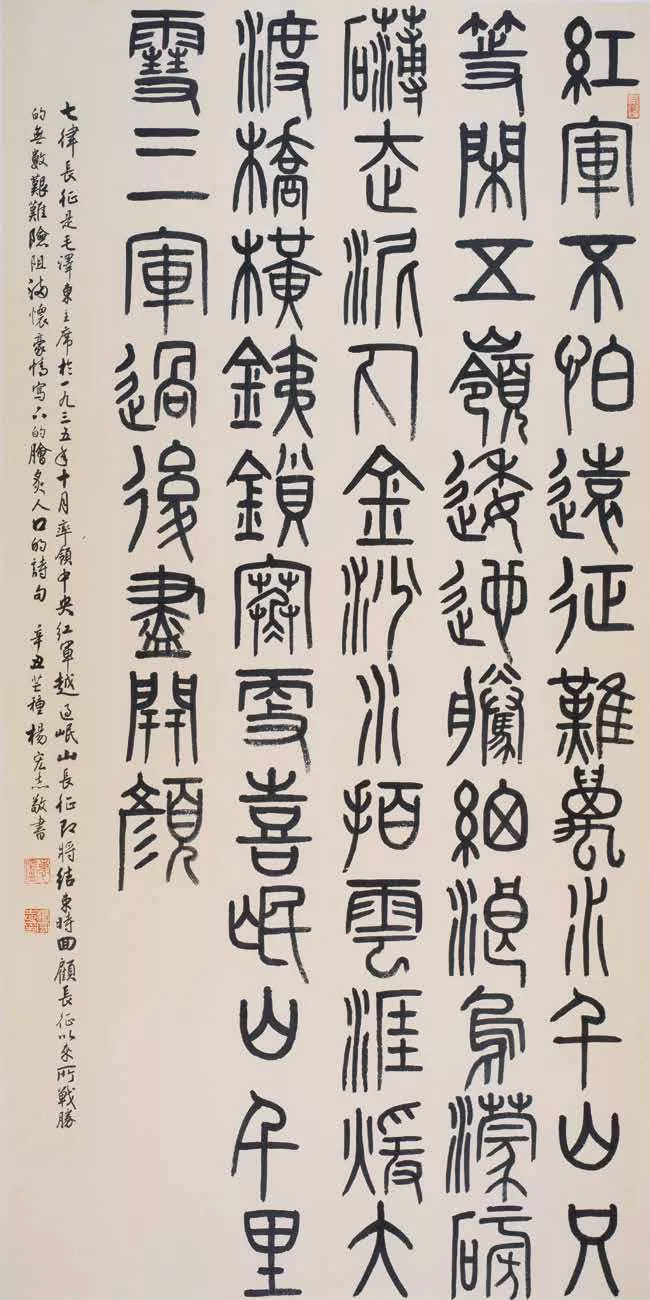 紅軍不怕遠征難萬水千山只
等閑五嶺逶迤騰細浪烏濛磅
礴走泥丸金沙水拍雲涯煖大
渡橋橫銕鎖寒更喜岷山千里
雪三軍過後盡開顏
七律長征是毛澤東主席於一九三五年十月率領中央紅軍越過岷山長征即將結束時回顧長征以來所戰勝
的無數艱難險阻滿懷豪情寫下的膾炙人口的詩句 辛丑芒種楊宏志敬書